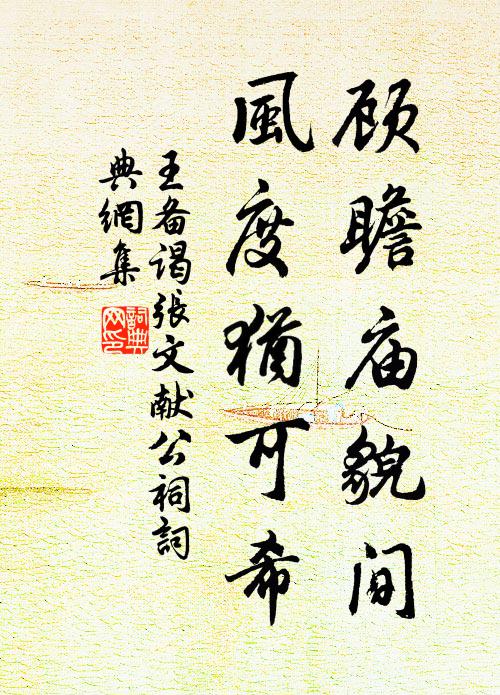 顾瞻庙貌间
風度猶可希
王备谒张文献公祠詞
典網集
詞典网印